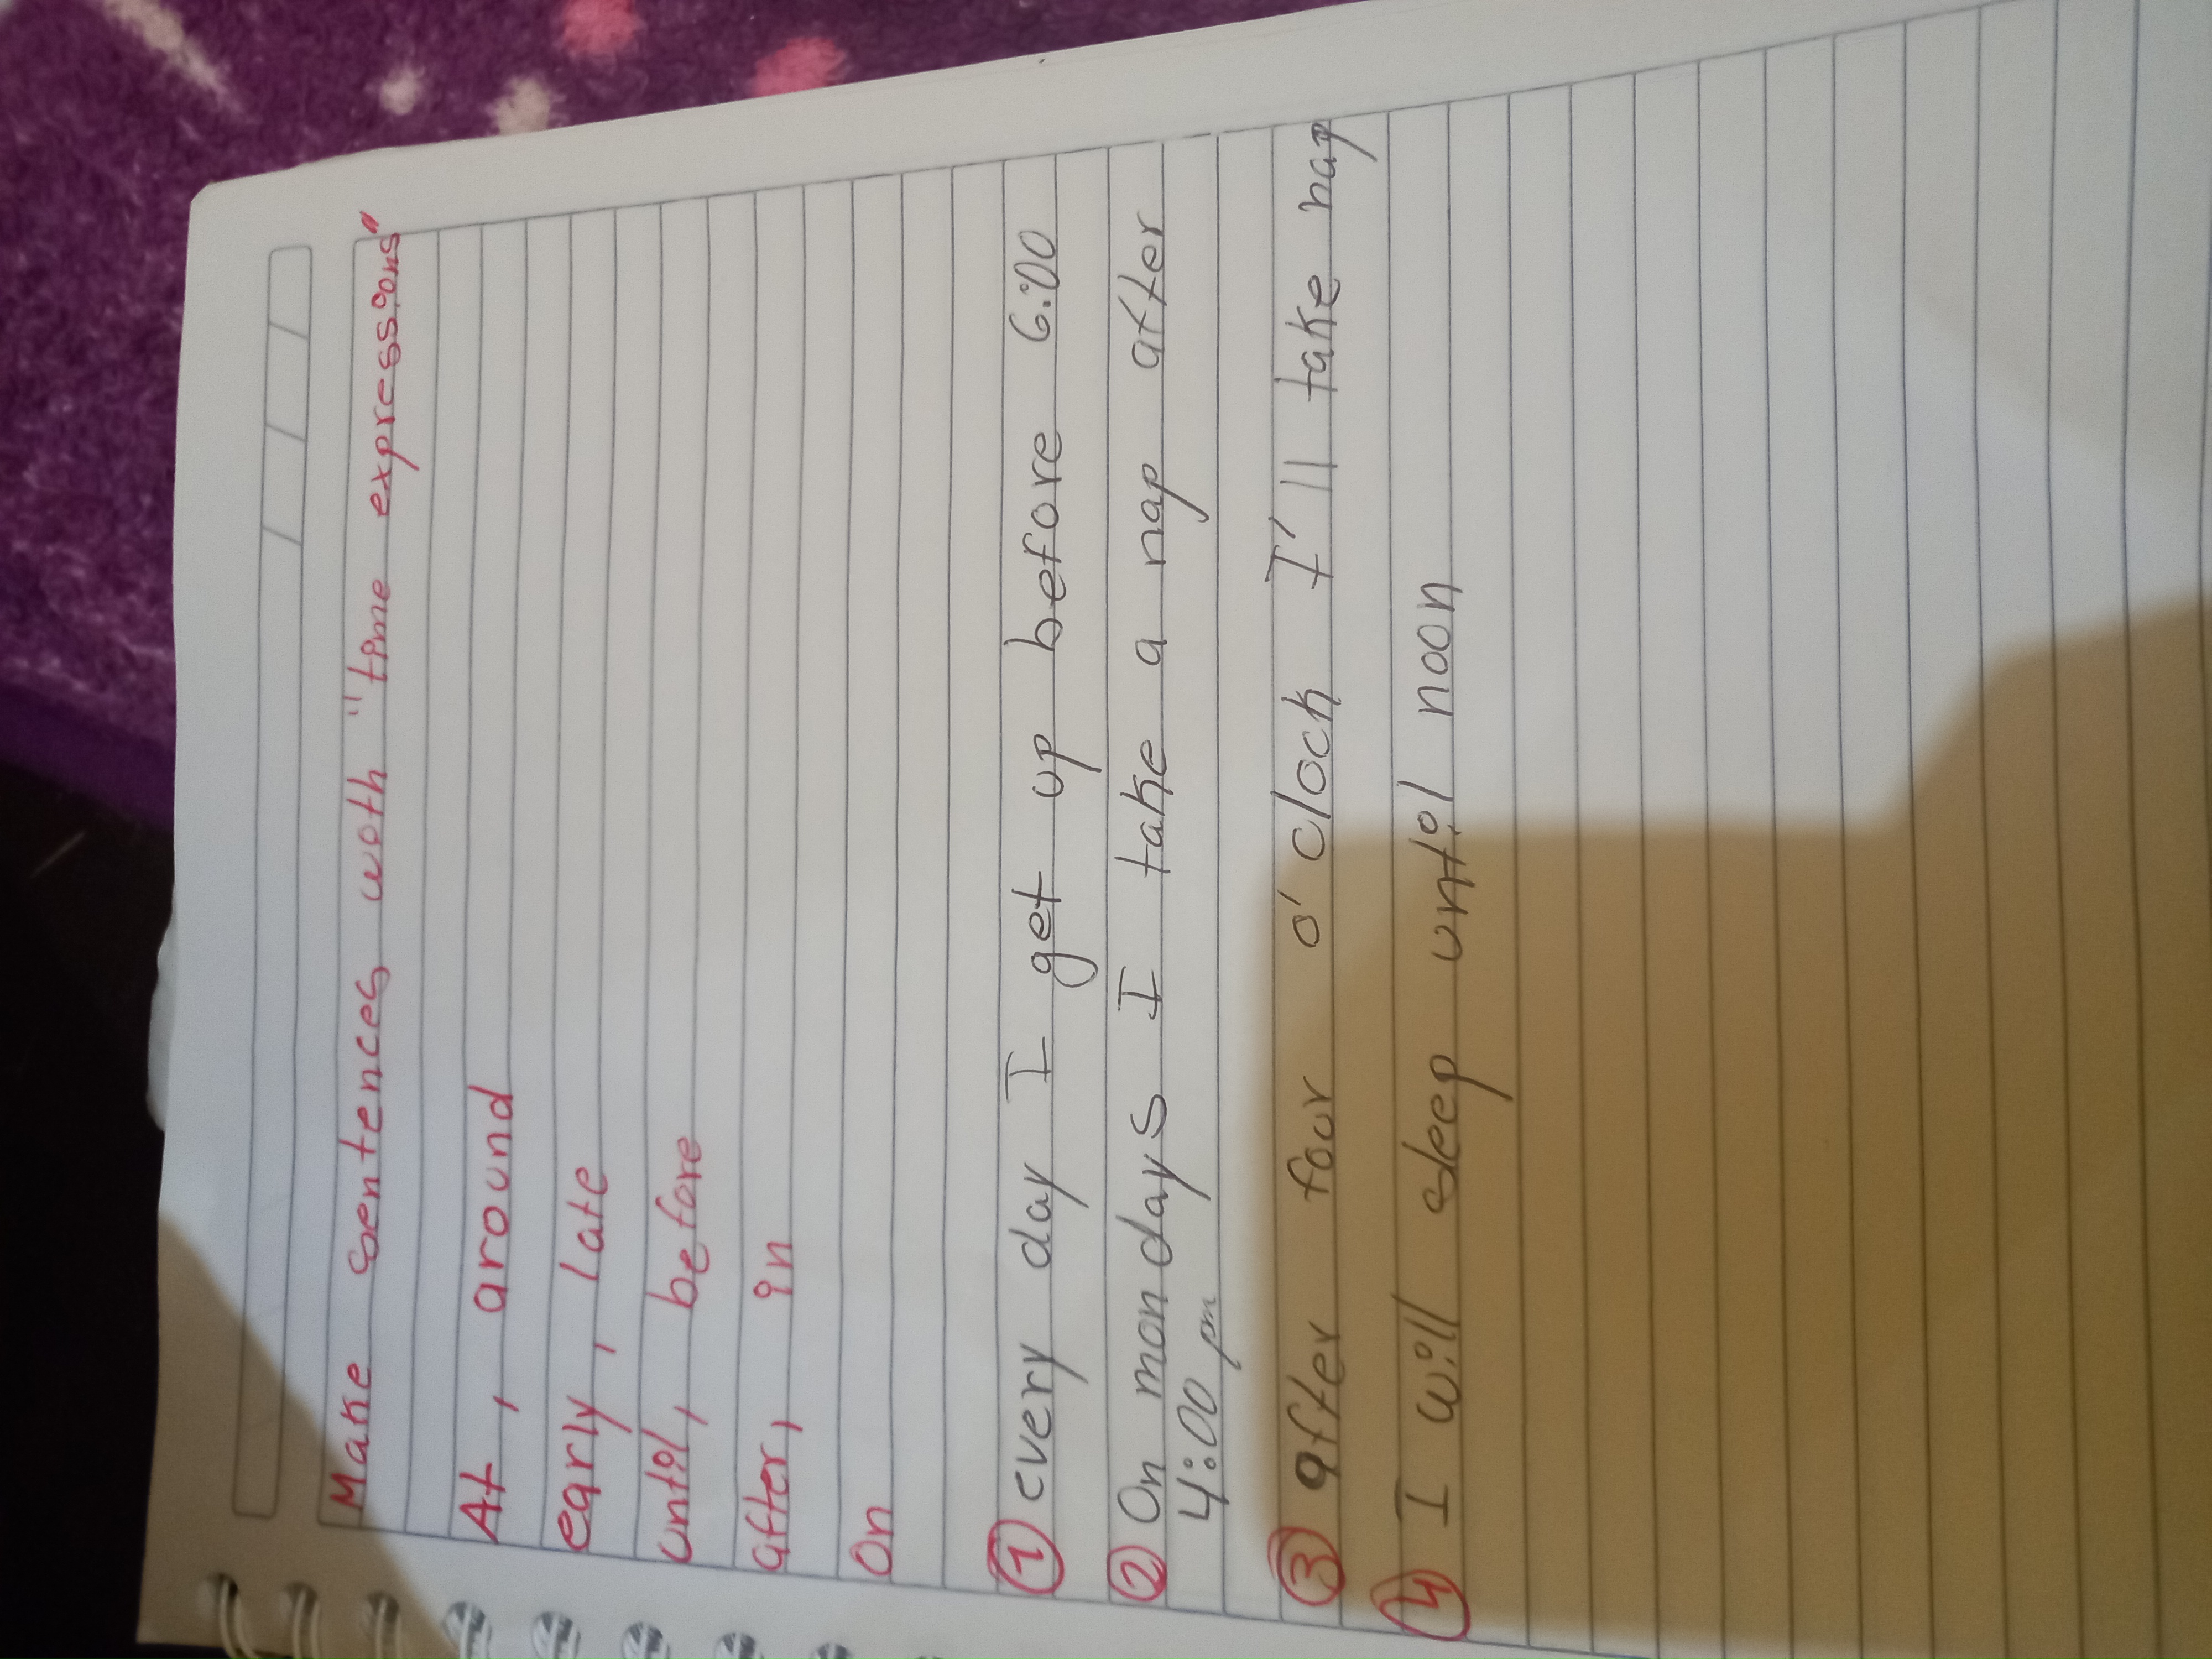 Make sentences with "time expressions"
At, around
early, late
until, before
after, in
On
1 every day I get up before 6:00
2 On mondays I take a nap after
4:00 pm
3 after four o'clock I'll take nap
4 I will sleep until noon